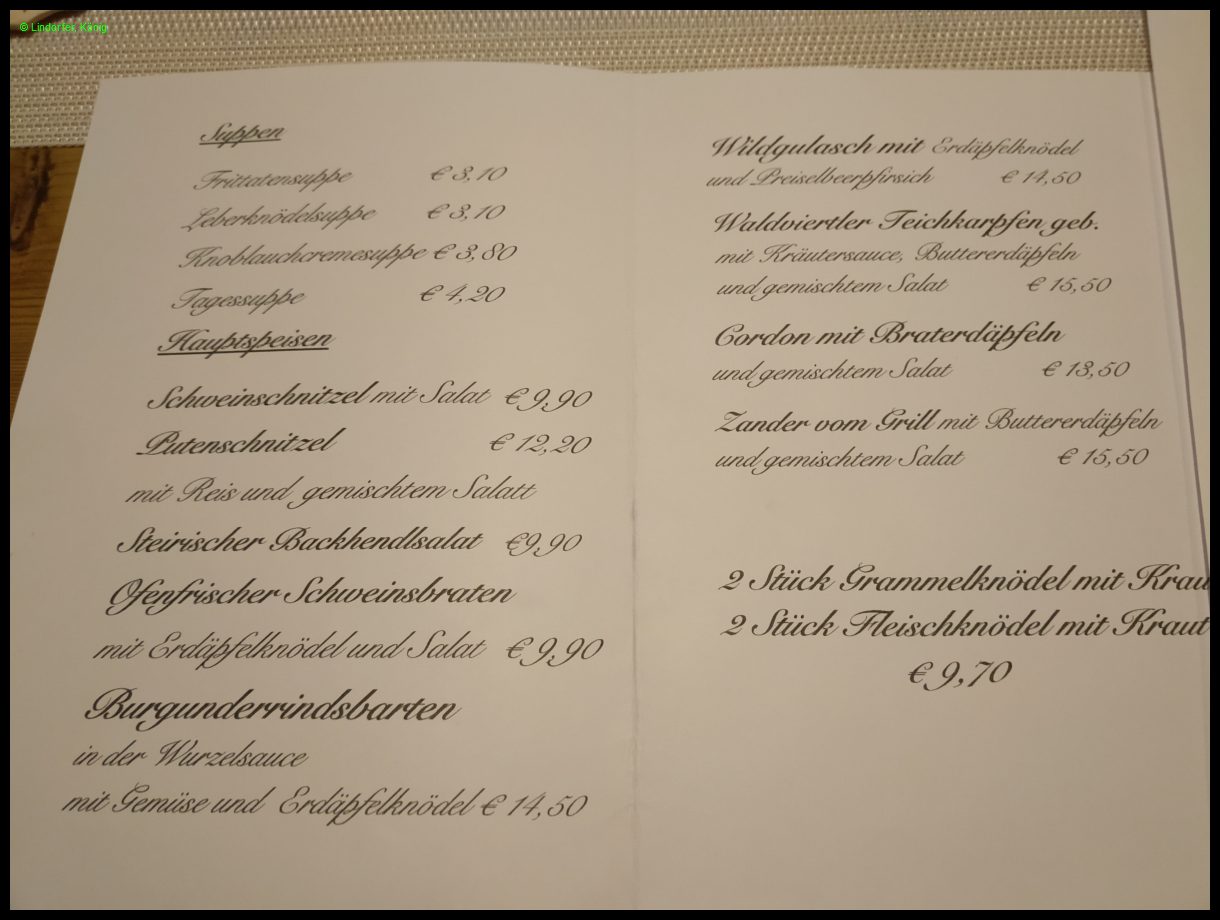 © Lindorfer, König
Suppen
Frittatensuppe € 3,10
Leberknödelsuppe € 3,10
Knoblauchcremesuppe € 3,80
Tagessuppe € 4,20
Hauptspeisen
Schweinschnitzel mit Salat € 9,90
Putenschnitzel € 12,20
mit Reis und gemischtem Salatt
Steirischer Backhendlsalat €9,90
Ofenfrischer Schweinsbraten
mit Erdäpfelknödel und Salat € 9,90
Burgunderrindsbarten
in der Wurzelsauce
mit Gemüse und Erdäpfelknödel € 14,50
Wildgulasch mit Erdäpfelknödel
und Preiselbeerpfirsich € 14,50
Waldviertler Teichkarpfen geb.
mit Kräutersauce, Buttererdäpfeln
und gemischtem Salat € 15,50
Cordon mit Braterdäpfeln
und gemischtem Salat € 13,50
Zander vom Grill mit Buttererdäpfeln
und gemischtem Salat € 15,50
2 Stück Grammelknödel mit Krau
2 Stück Fleischknödel mit Kraut
€ 9,70